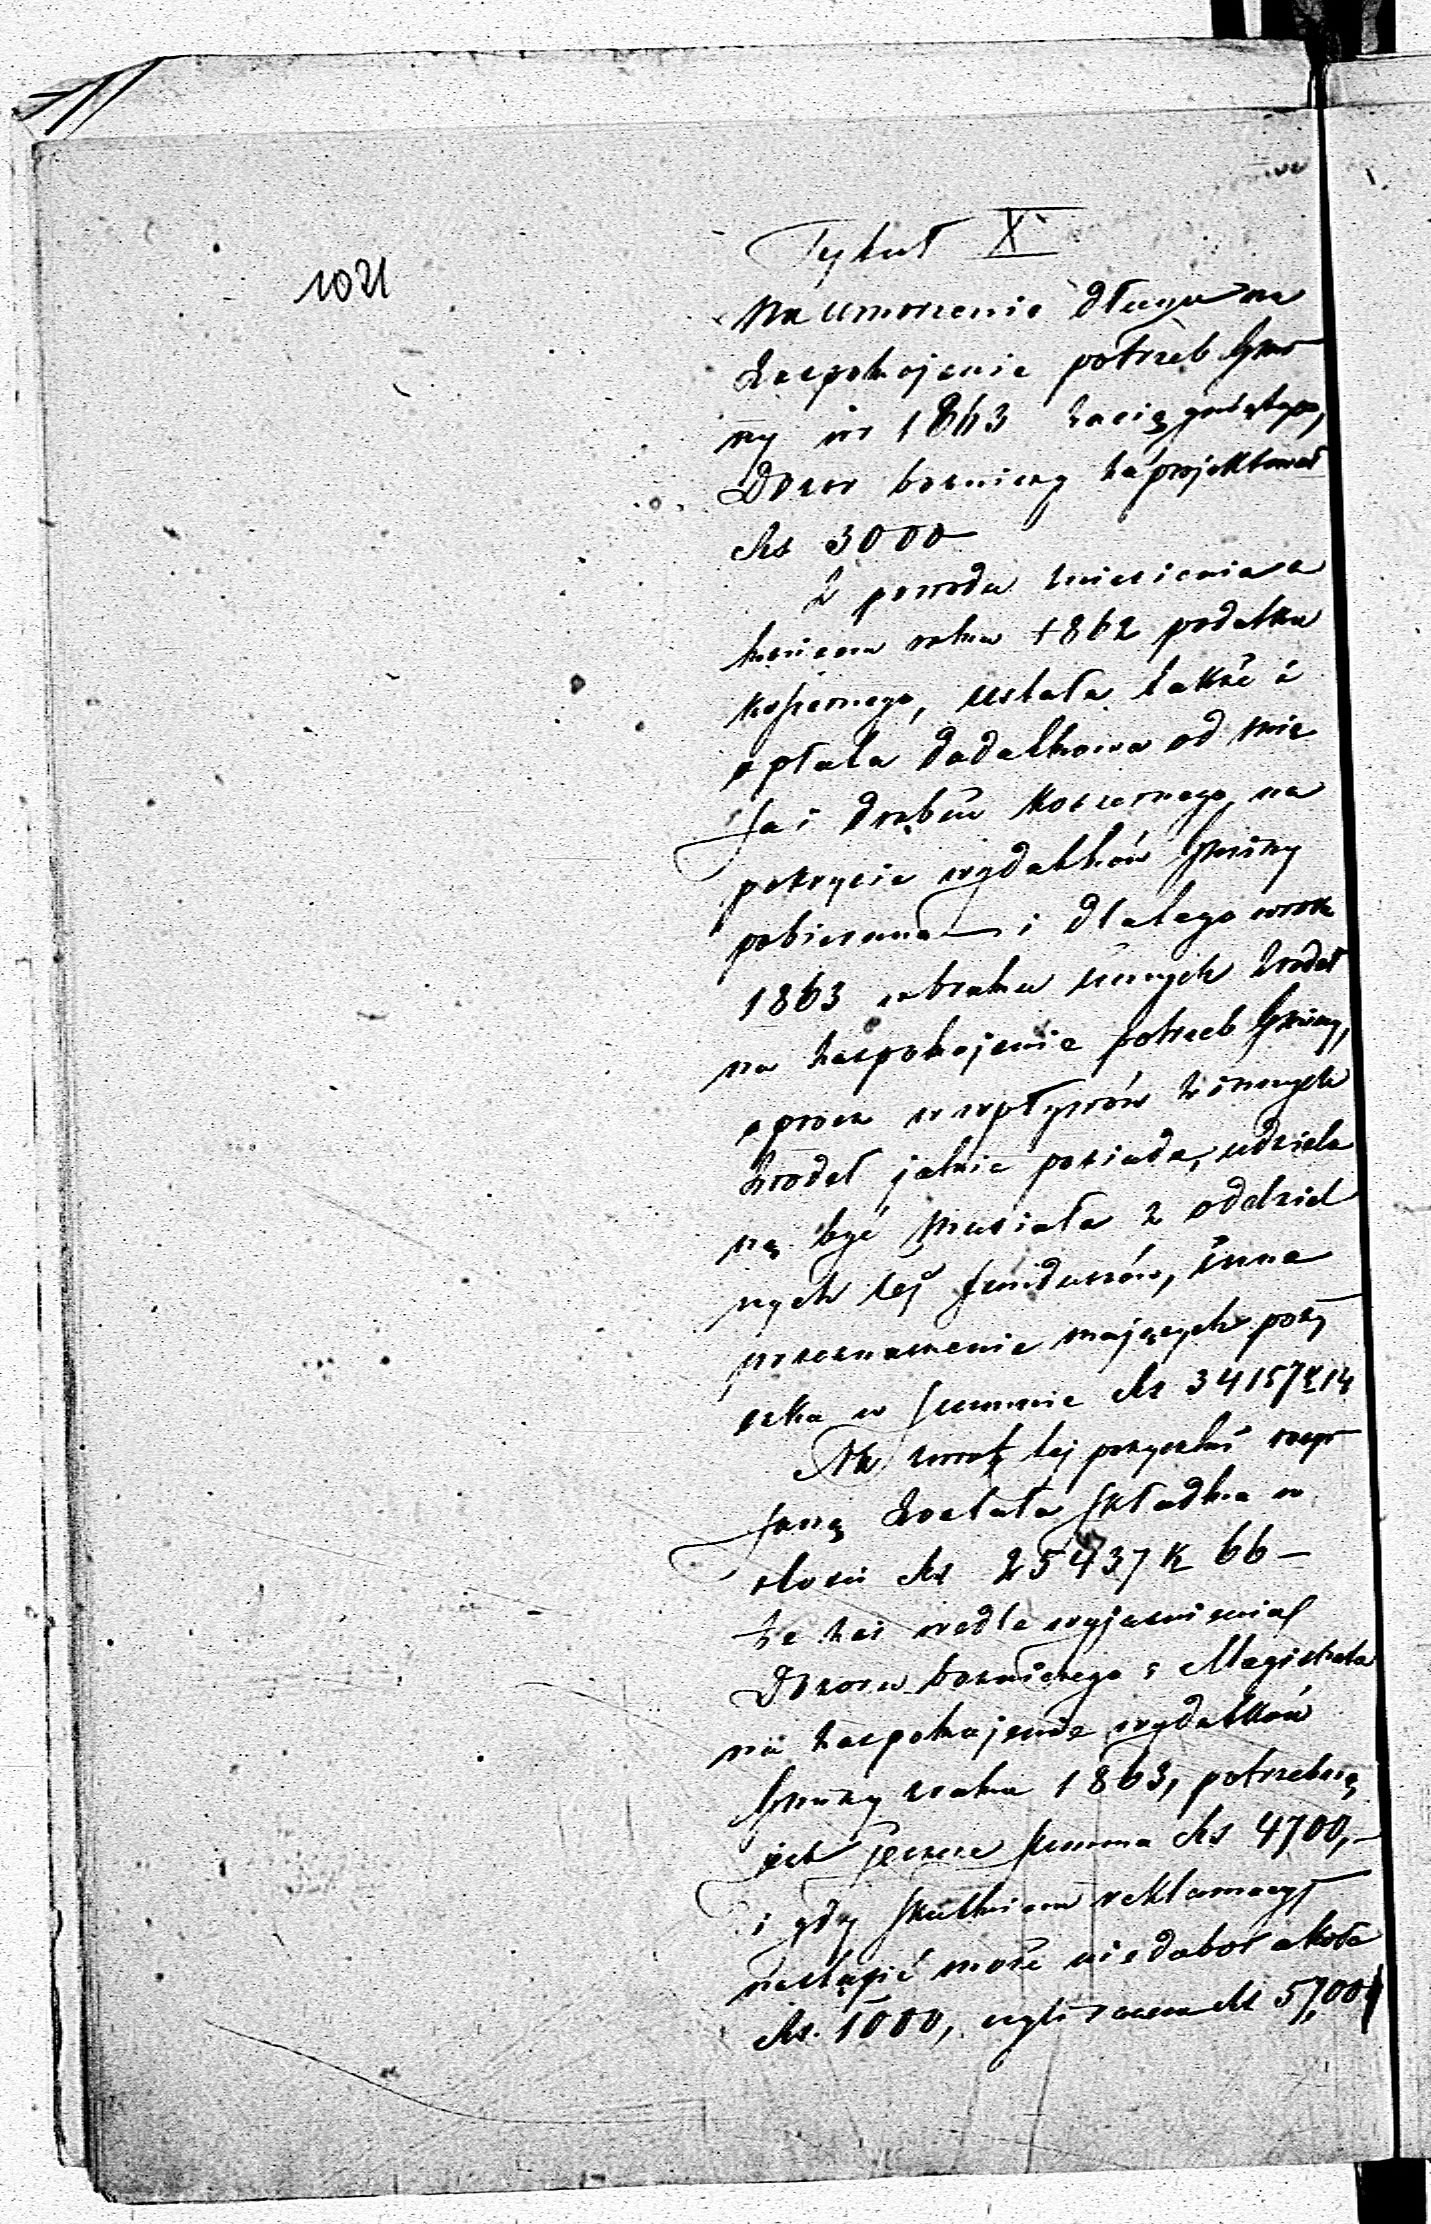 1021
Tytuł X
Na umorzenie długu na
Zaspokojenie potrzeb Gmi
ny w 1863 zaciągniętego,
Dozor bożniczy zaprojektował
Rs 3000
Z powodu zniesienia z
końcem roku 1862 podatku
koszernego, ustała także i
opłata dodatkowa od mię
sa i drobiu koszernego, na
pokrycie wydatków Gminy
pobierana i dlatego w rok
1863 w braku innych źrodeł
na zaspokojenie potrzeb Gminy,
oprocz wpływów z innych
źrodeł jakie posiada, udziela
ną być musiała z oddziel
nych tej funduszów, inne
przeznaczenie mających poży
czka w summie Rs 34157 k 14
Na zwrot tej pożyczki rozpi
saną została składka w
ilości Rs 25437 k 66 –
że zaś wedle wyjaśnienia
Dozoru bożniczego i Magistratu
na zaspokojenie wydatków
Gminy z roku 1863, potrzebną
jest jeszcze summa Rs 4700, –
i gdy skutkiem reklamacyi
nastąpić może niedobor około
Rs. 1000, czyli razem Rs 5,700